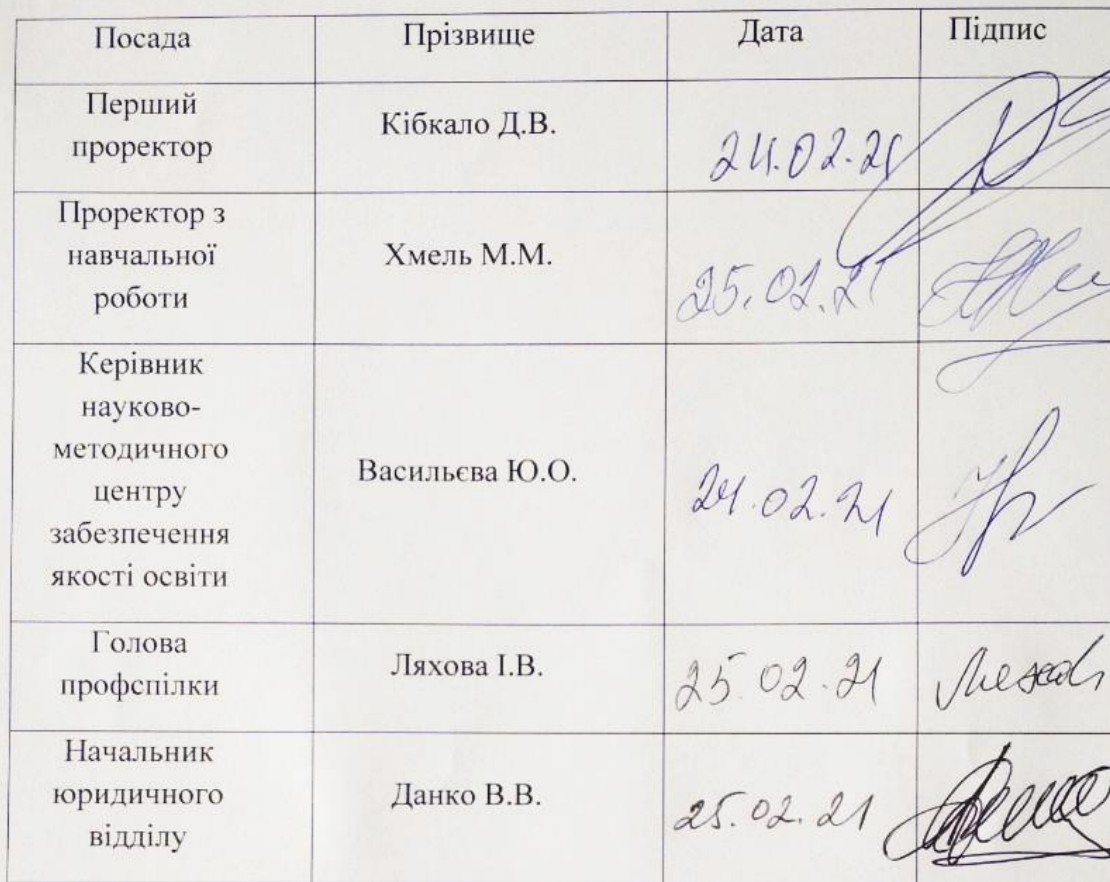 Посада Прізвище Дата Підпис
Перший
проректор
Кібкало Д.В.
24.02.21
Проректор з
навчальної
роботи
Хмель М.М.
25.02.21
Керівник
науково-
методичного
центру
забезпечення
якості освіти
Васильєва Ю.О.
24.02.21
Голова
профспілки
Ляхова І.В.
25.02.21
Начальник
юридичного
відділу
Данко В.В.
25.02.21